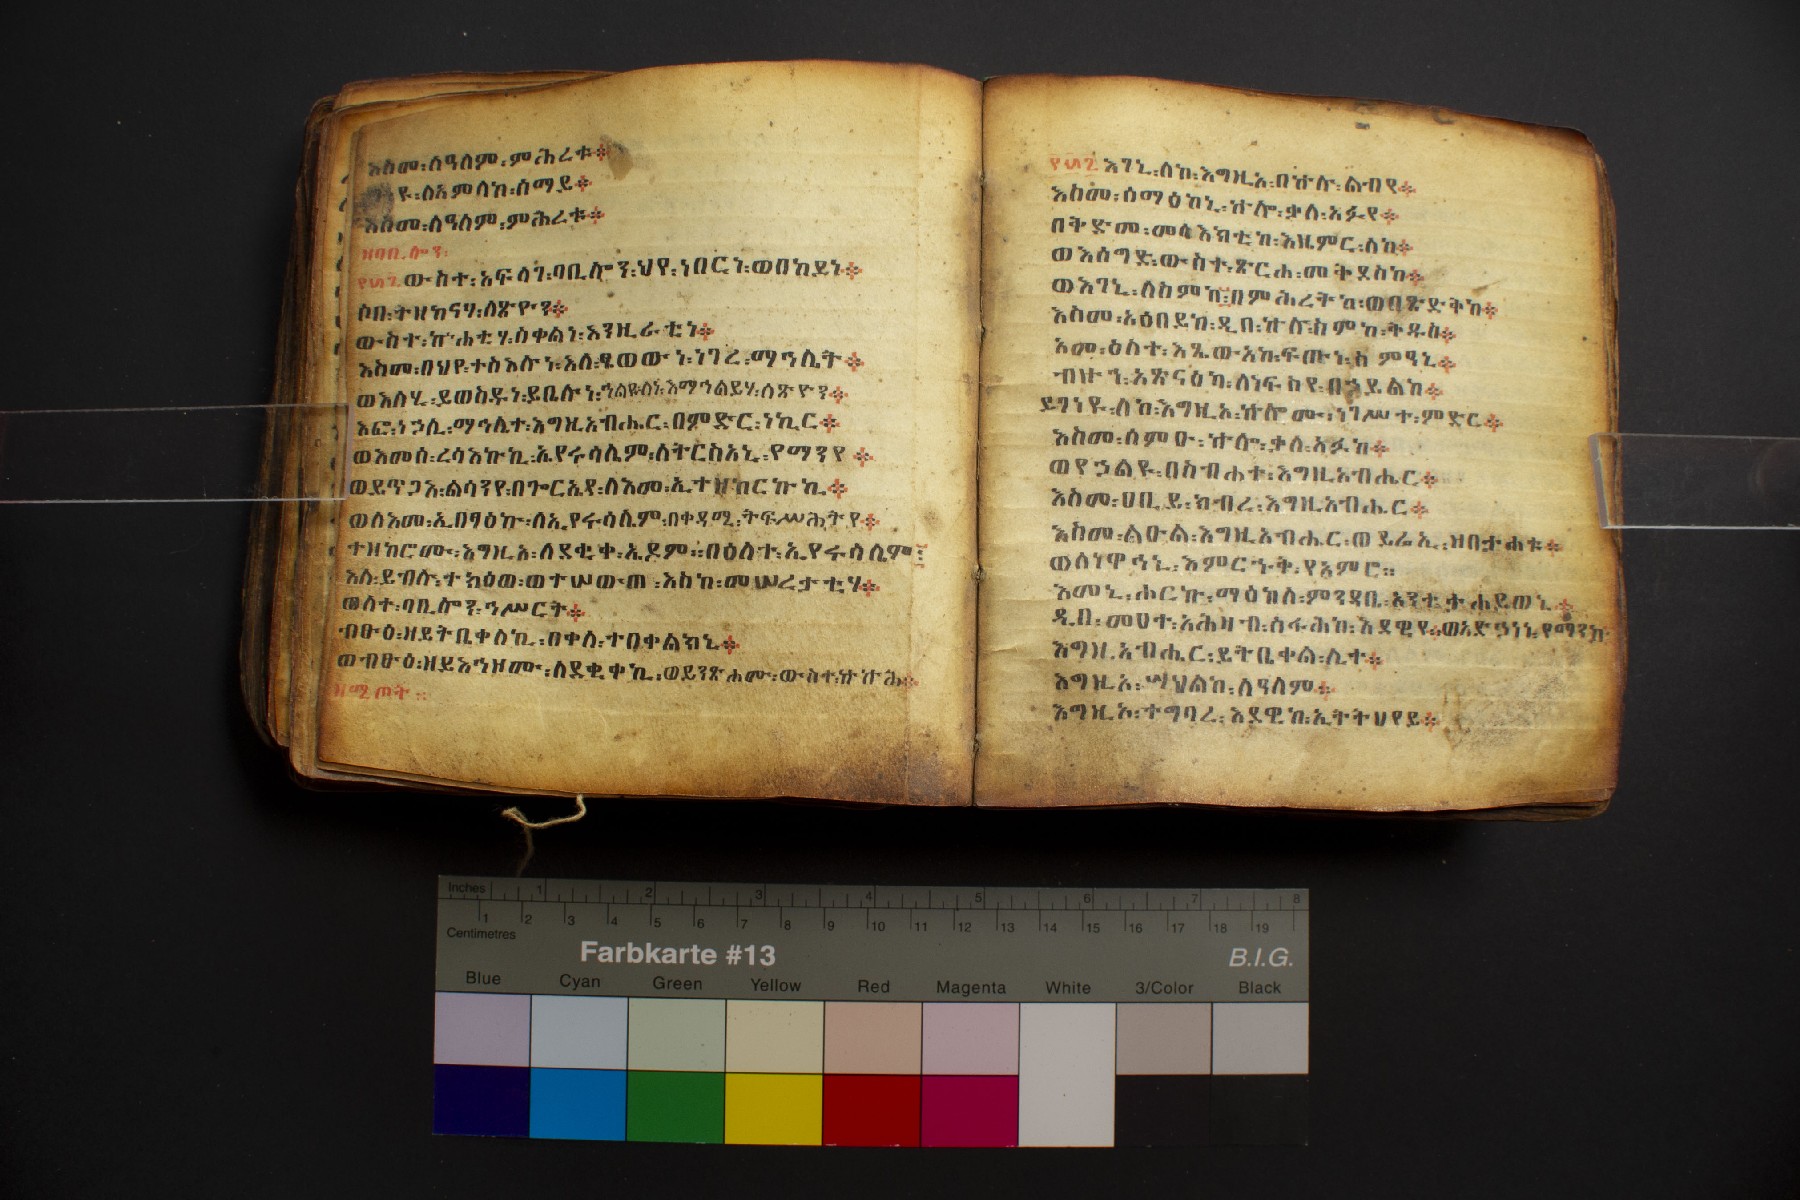 እስመ፡ለዓለም፡ምሕረቱ፨
ለአምላከ፡ሰማይ፨
እስመ፡ለዓለም፡ምሕረቱ፨
ውስተ፡አፍላገ፡ባቢሎን፡ህየ፡ነበርነ፡ወበከይነ፨
ሶበ፡ተዘከርናሃ፡ለጽዮን፨
ውስተ፡ኵሐቲሃ፡ሰቀልነ፡እንዚራቲነ፨
እስመ፡በህየ፡ተስእሉነ፡እለ፡ፄወውነ፡ነገረ፡ማኅሌት፨
ወእለሂ፡ይወስዱነ፡ይቤሉነ፡ኀልዩ፡ለነ፡እማኅልይሃ፡ለጽዮን፨
እፎ፡ነኃሊ፡ማኅሌተ፡እግዚአብሔር፡በምድር፡ነኪር፨
ወእመሰ፡ረሳእኩኪ፡ኢየሩሳሌም፡ለትርስአኒ፡የማንየ፨
ወይጥጋእ፡ልሳንየ፡በጐርዔየ፡ለእመ፡ኢተዘከርኩኪ፨
ወለእመ፡ኢበፃዕኩ፡ለኢየሩሳሌም፡በቀዳሚ፡ትፍሥሕትየ፨
ተዘከሮሙ፡እግዚአ፡ለደቂቀ፡ኤዶም።በዕለተ፡ኢየሩሳሌም፤
እለ፡ይብሉ፡ተኳዕወ፡ወተሠውጠ፡እስከ፡መሠረታቲሃ፨
ወለተ፡ባቢሎን፡ኅሥርት፨
ብፁዕ፡ዘይትቤቀለኪ፡በቀለ፡ተበቀልክኒ፨
ወብፁዕ፡ዘይእኅዘሙ፡ለደቂቀኪ፡ወይንጽሖሙ፡ውስተ፡ኰኵሕ፨
ዘዳዊት።
እገኒ፡ለከ፡እግዚአ፡በኵሉ፡ልብየ፨
እስመ፡ሰማዕከኒ፡ኵሎ፡ቃለ፡አፉየ፨
በቅድመ፡መላእክቲከ፡እዜምር፡ለከ፨
ወእሰግድ፡ውስተ፡ጽርሐ፡መቅደስከ፨
ወእገኒ፡ለስምከ፡በምሕረትከ፡ወበጽድቅከ፨
እስመ፡አዕበይከ፡ዲበ፡ኵሉ፡ስምከ፡ቅዱስ፨
አመ፡ዕለተ፡እጼውአከ፡ፍጡነ፡ስምዓኒ፨
ብዙኀ፡አጽናዕካ፡ለነፍስየ፡በኃይልከ፨
ይገንዩ፡ለከ፡እግዚአ፡ኵሎሙ፡ነገሥተ፡ምድር፨
እስመ፡ሰምዑ፡ኵሎ፡ቃለ፡አፉከ፨
ወየኃልዩ፡በስብሐተ፡እግዚአብሔር፨
እስመ፡ዐቢይ፡ክብረ፡እግዚአብሔር፨
እስመ፡ልዑል፡እግዚአብሔር፡ወይሬኢ፡ዘበታሕቱ፨
ወለነዋኅኒ፡እምርኁቅ፡የአምሮ።
እመኒ፡ሖርኩ፡ማዕከለ፡ምንዳቤ፡አንተ፡ታሐይወኒ፨
ዲበ፡መዐተ፡አሕዛብ፡ሰፋሕከ፡እደዊየ፨ወአድኃነነ፡የማንከ
እግዚአብሔር፡ይትቤቀል፡ሊተ፨
እግዚአ፡ሣህልከ፡ለዓለም፨
እግዚኦ፡ተግባረ፡እደዊከ፡ኢትትሀየይ፨